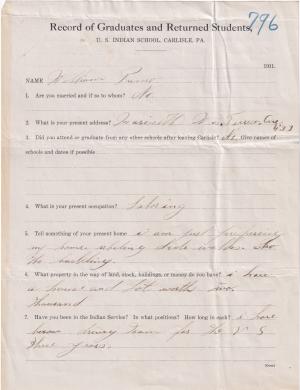 796
Record of Graduates and Returned Students,
U. S. INDIAN SCHOOL, CARLISLE, PA.
1911.
NAME William
1. Are you married and if so to whom? No
2. What is your present address?
3. Did you attend or graduate from any other schools after leaving Carlisle? No Give names of
schools and dates if possible
4. What is your present occupation? Laboring
5. Tell something of your present home i am just preparing
my house
the
6. What property in the way of land, stock, buildings, or money do you have? i have
a house and lot worth two
thousand
7. Have you been in the Indian Service? In what positions? How long in each? i have
been driving team for the U S
three years.